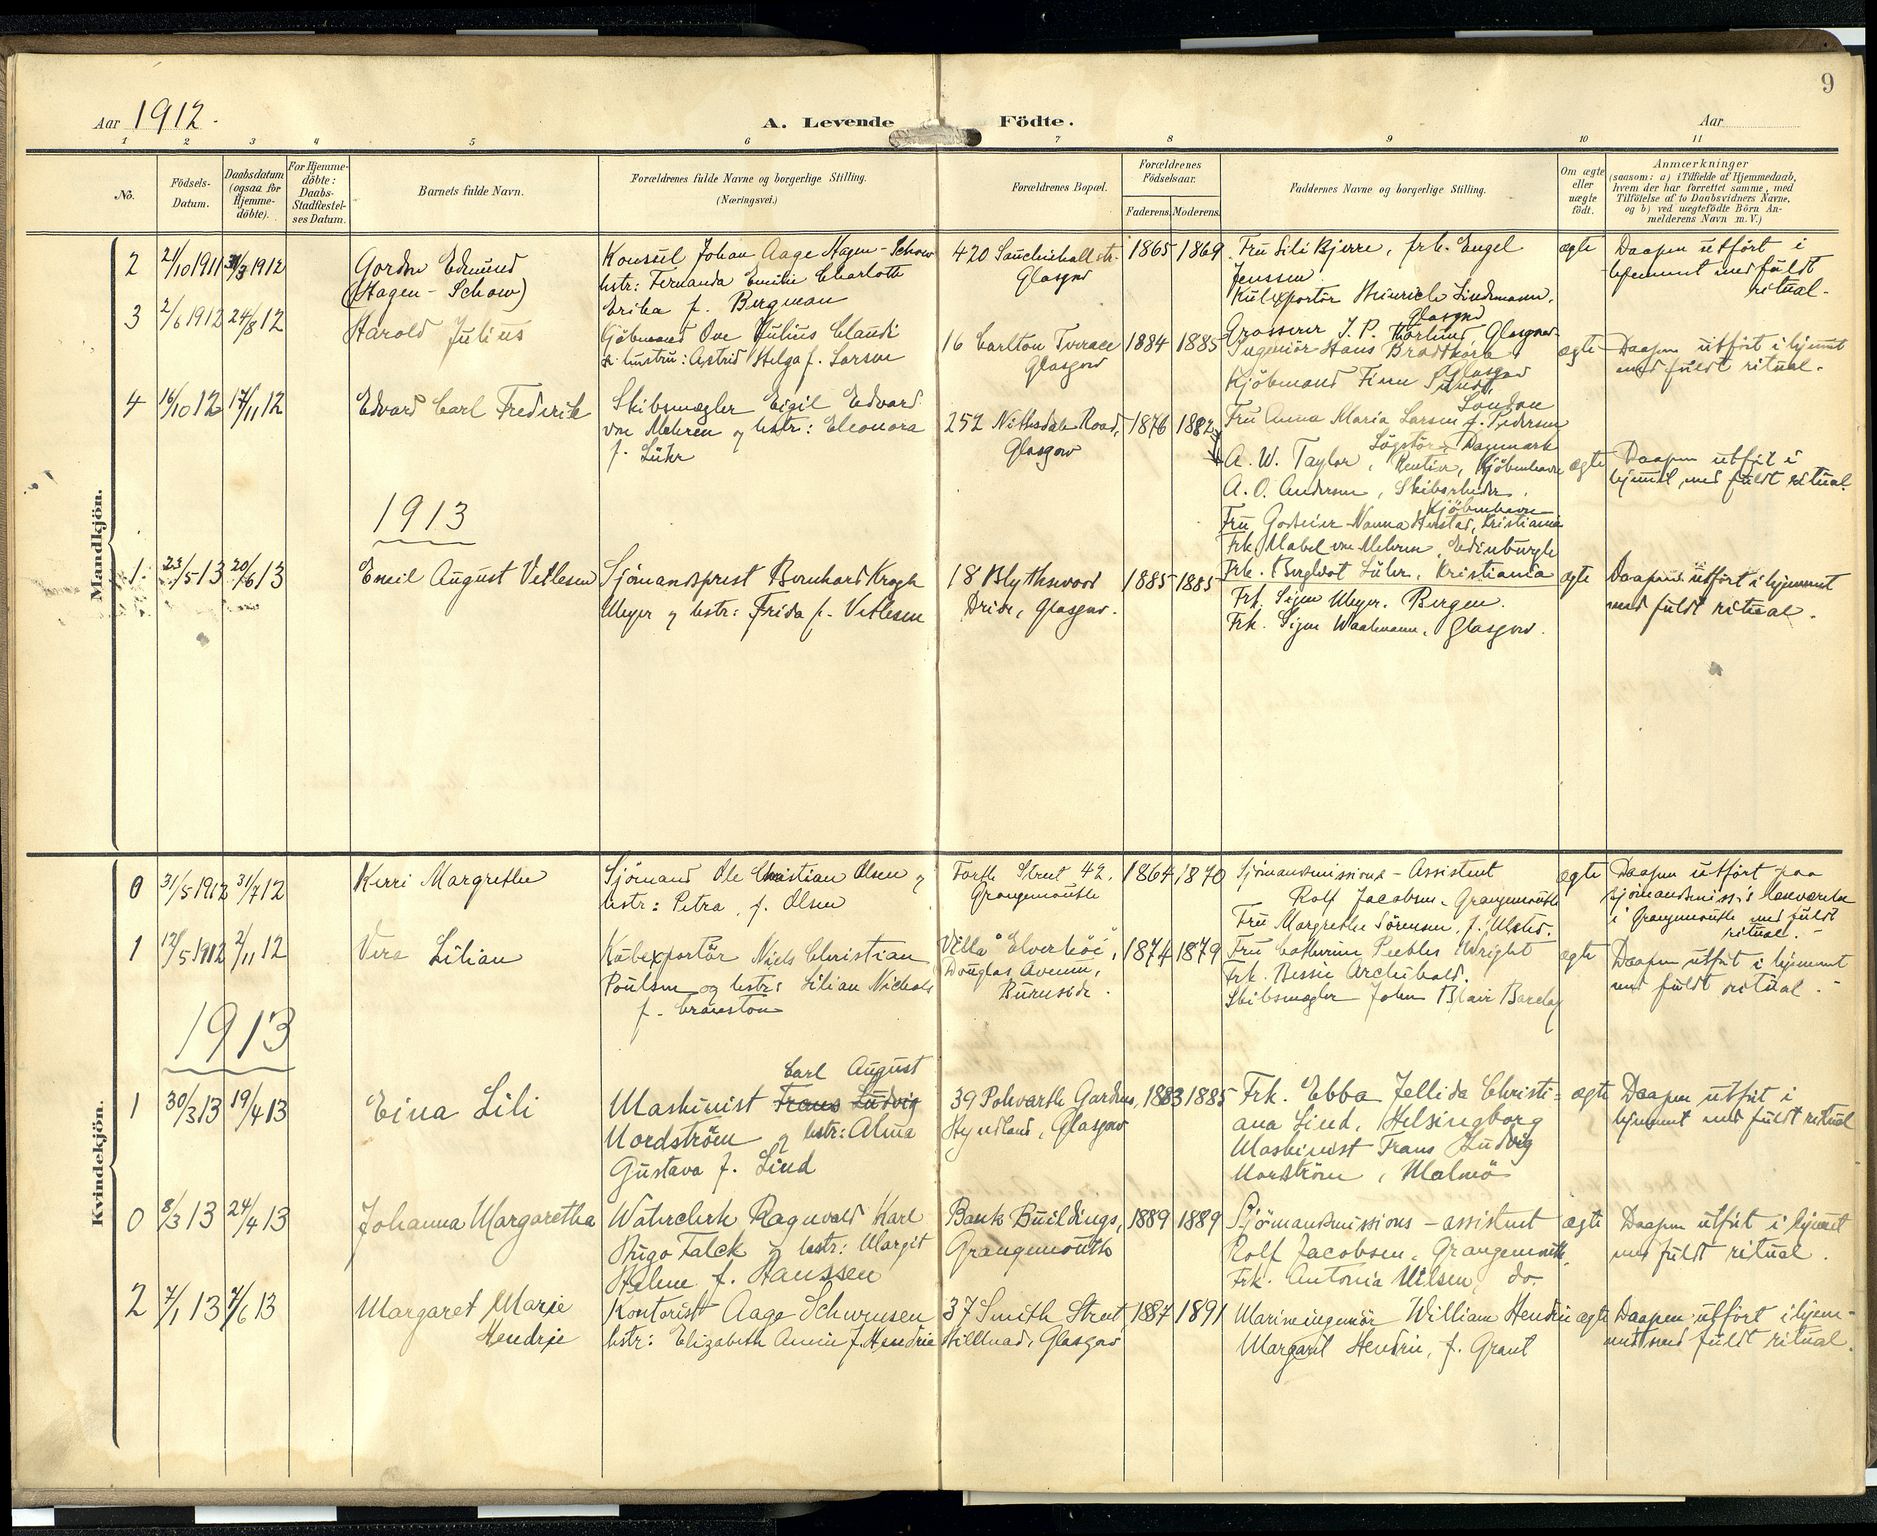 9
Aar 1912.
A. Levende Födte.
Aar
1 2 3 4 5 6 7 8 9 10 11
No.
Födsels-
Datum.
Daabsdatum
(ogsaa for
Hjemme-
döbte).
For Hjemme-
döbte:
Daabs-
Stadfæstel-
ses Datum.
Barnets fulde Navn.
Forældrenes fulde Navne og borgerlige Stilling.
(Næringsvei.)
Forældrenes Bopæl.
Forældrenes
Födselsaar.
Faderens. Moderens.
Faddernes Navne og borgerlige Stilling.
Om ægte
eller
uægte
födt.
Anmærkninger
(saasom: a) i Tilfælde af Hjemmedaab,
hvem der har forrettet samme, med
Tilföielse af to Daabsvidners Navne,
og b) ved uægtefödte Börn An-
melderens Navn m. V.)
Mandkjön.
2
21/10 1911
31/3 1912
Gordon Edmund
(Hagen-Schow)
Konsul Johan Aage Hagen-Schow
hstr: Fernanda Emilie Charlotte
Erika f. Bergman
420 Sauchiehall str.
Glasgow
1865
1869
Fru Lili Bjerre, frk. Engel
Jenssen
Kulexportör Hinrich Lindemann,
Glasgow
ægte
Daapen utfört i
hjemmet med fuldt
ritual.
3
2/6 1912
24/8 12
Harold Julius
Kjöbmand Ove Julius Claudi
& hustru: Astrid Helga f. Larsen
16 Carlton Terrace
Glasgow
1884
1885
Grosserer J. P. Glasgow
Ingeniör Hans
Glasgow
Kjöbmand Finn
London
Fru Anna Maria Larsen f. Pedersen
Lögstör, Danmark
ægte
Daapen utfört i hjemmet
med fuldt ritual.
4
16/10 12
17/11 12
Edvard Carl Frederik
Skibsmægler Eigil Edvard
von Mehren og hstr: Eleonora
f. Lühr
252 Nithsdale Road,
Glasgow
1876
1882
A. W. Taylor, Rentier, Kjöbenhavn
A. O. Andersen, Skibsrheder,
Kjöbenhavn
Fru Nanna Kristiania
Frk. Mabel von Mehren, Edinburgh
Frk. Bergliot Lühr, Kristiania
ægte
Daapen utfört i
hjemmet med fuldt ritual.
1913
1.
23/5 13
20/6 13
Emeil August Vetlesen
Sjömandsprest Bernhard Krogh
Meyer og hstr: Frida f. Vetlesen
18 Blythswood
Drive, Glasgow.
1885
1885
Frk. Signe Meyer. Bergen.
Frk. Signe Waalmann, Glasgow.
ægte
Daapen utfört i hjemmet
med fuldt ritual.
Kvindekjön.
0
31/5 1912
31/7 12
Kirri Margrethe
Sjömand Ole Christian Olsen og
hstr: Petra, f. Olsen
Forth Street 42,
Grangemouth
1864
1870
Sjömandsmissions-Assistent
Rolf Jacobsen, Grangemouth
Fru Margrethe Sörensen, f. Ulsted.
ægte
Daapen utfört paa
sjömandsmiss's læseværelse
i Grangemouth med fuldt
ritual.
1
12/5 1912
2/11 12
Vera Lilian
Kulexportör Niels Christian
Poulsen og hstr: Lilian Nichols
f. Cranston
Villa "Elverhöi",
Douglas Avenue,
Burnside.
1874
1879
Fru Catherine Peebles Wright
Frk. Bessie Archibald.
Skibsmægler John Blair Barclay
ægte
Daapen utfört i hjemmet
med fuldt ritual.
1913
1
30/3 13
19/4 13
Eina Lili
Carl August
Maskinist Frans Ludvig
Nordström og hstr: Alma
Gustava f. Lind
39 Polwarth Gardens,
Hyndland, Glasgow
1883
1885
Frk. Ebba Jellida Christi=
ana Lind, Helsingborg
Maskinist Frans Ludvig
Nordström, Malmö
ægte
Daapen utfört i
hjemmet med fuldt ritual
0
8/3 13
24/4 13
Johanna Margaretha
Waterclerk Ragnvald Karl
Hugo Falck og hstr: Margit
Helene f. Hanssen
Bank Buildings,
Grangemouth
1889
1889
Sjömandsmissions-assistent
Rolf Jacobsen, Grangemouth.
Frk. Antonia Nilsen, do.
ægte
Daapen utfört i hjemmet
med fuldt ritual.
2
7/1 13
7/6 13
Margaret Marie
Hendrie
Kontorist Aage Schwensen
hstr: Elizabeth Annie f. Hendrie
37 Smith Street
Hillhead, Glasgow
1887
1891
Marineingeniör William Hendrie
Margaret Hendrie, f. Grant
ægte
Daapen utfört i hjem-
met med fuldt ritual.